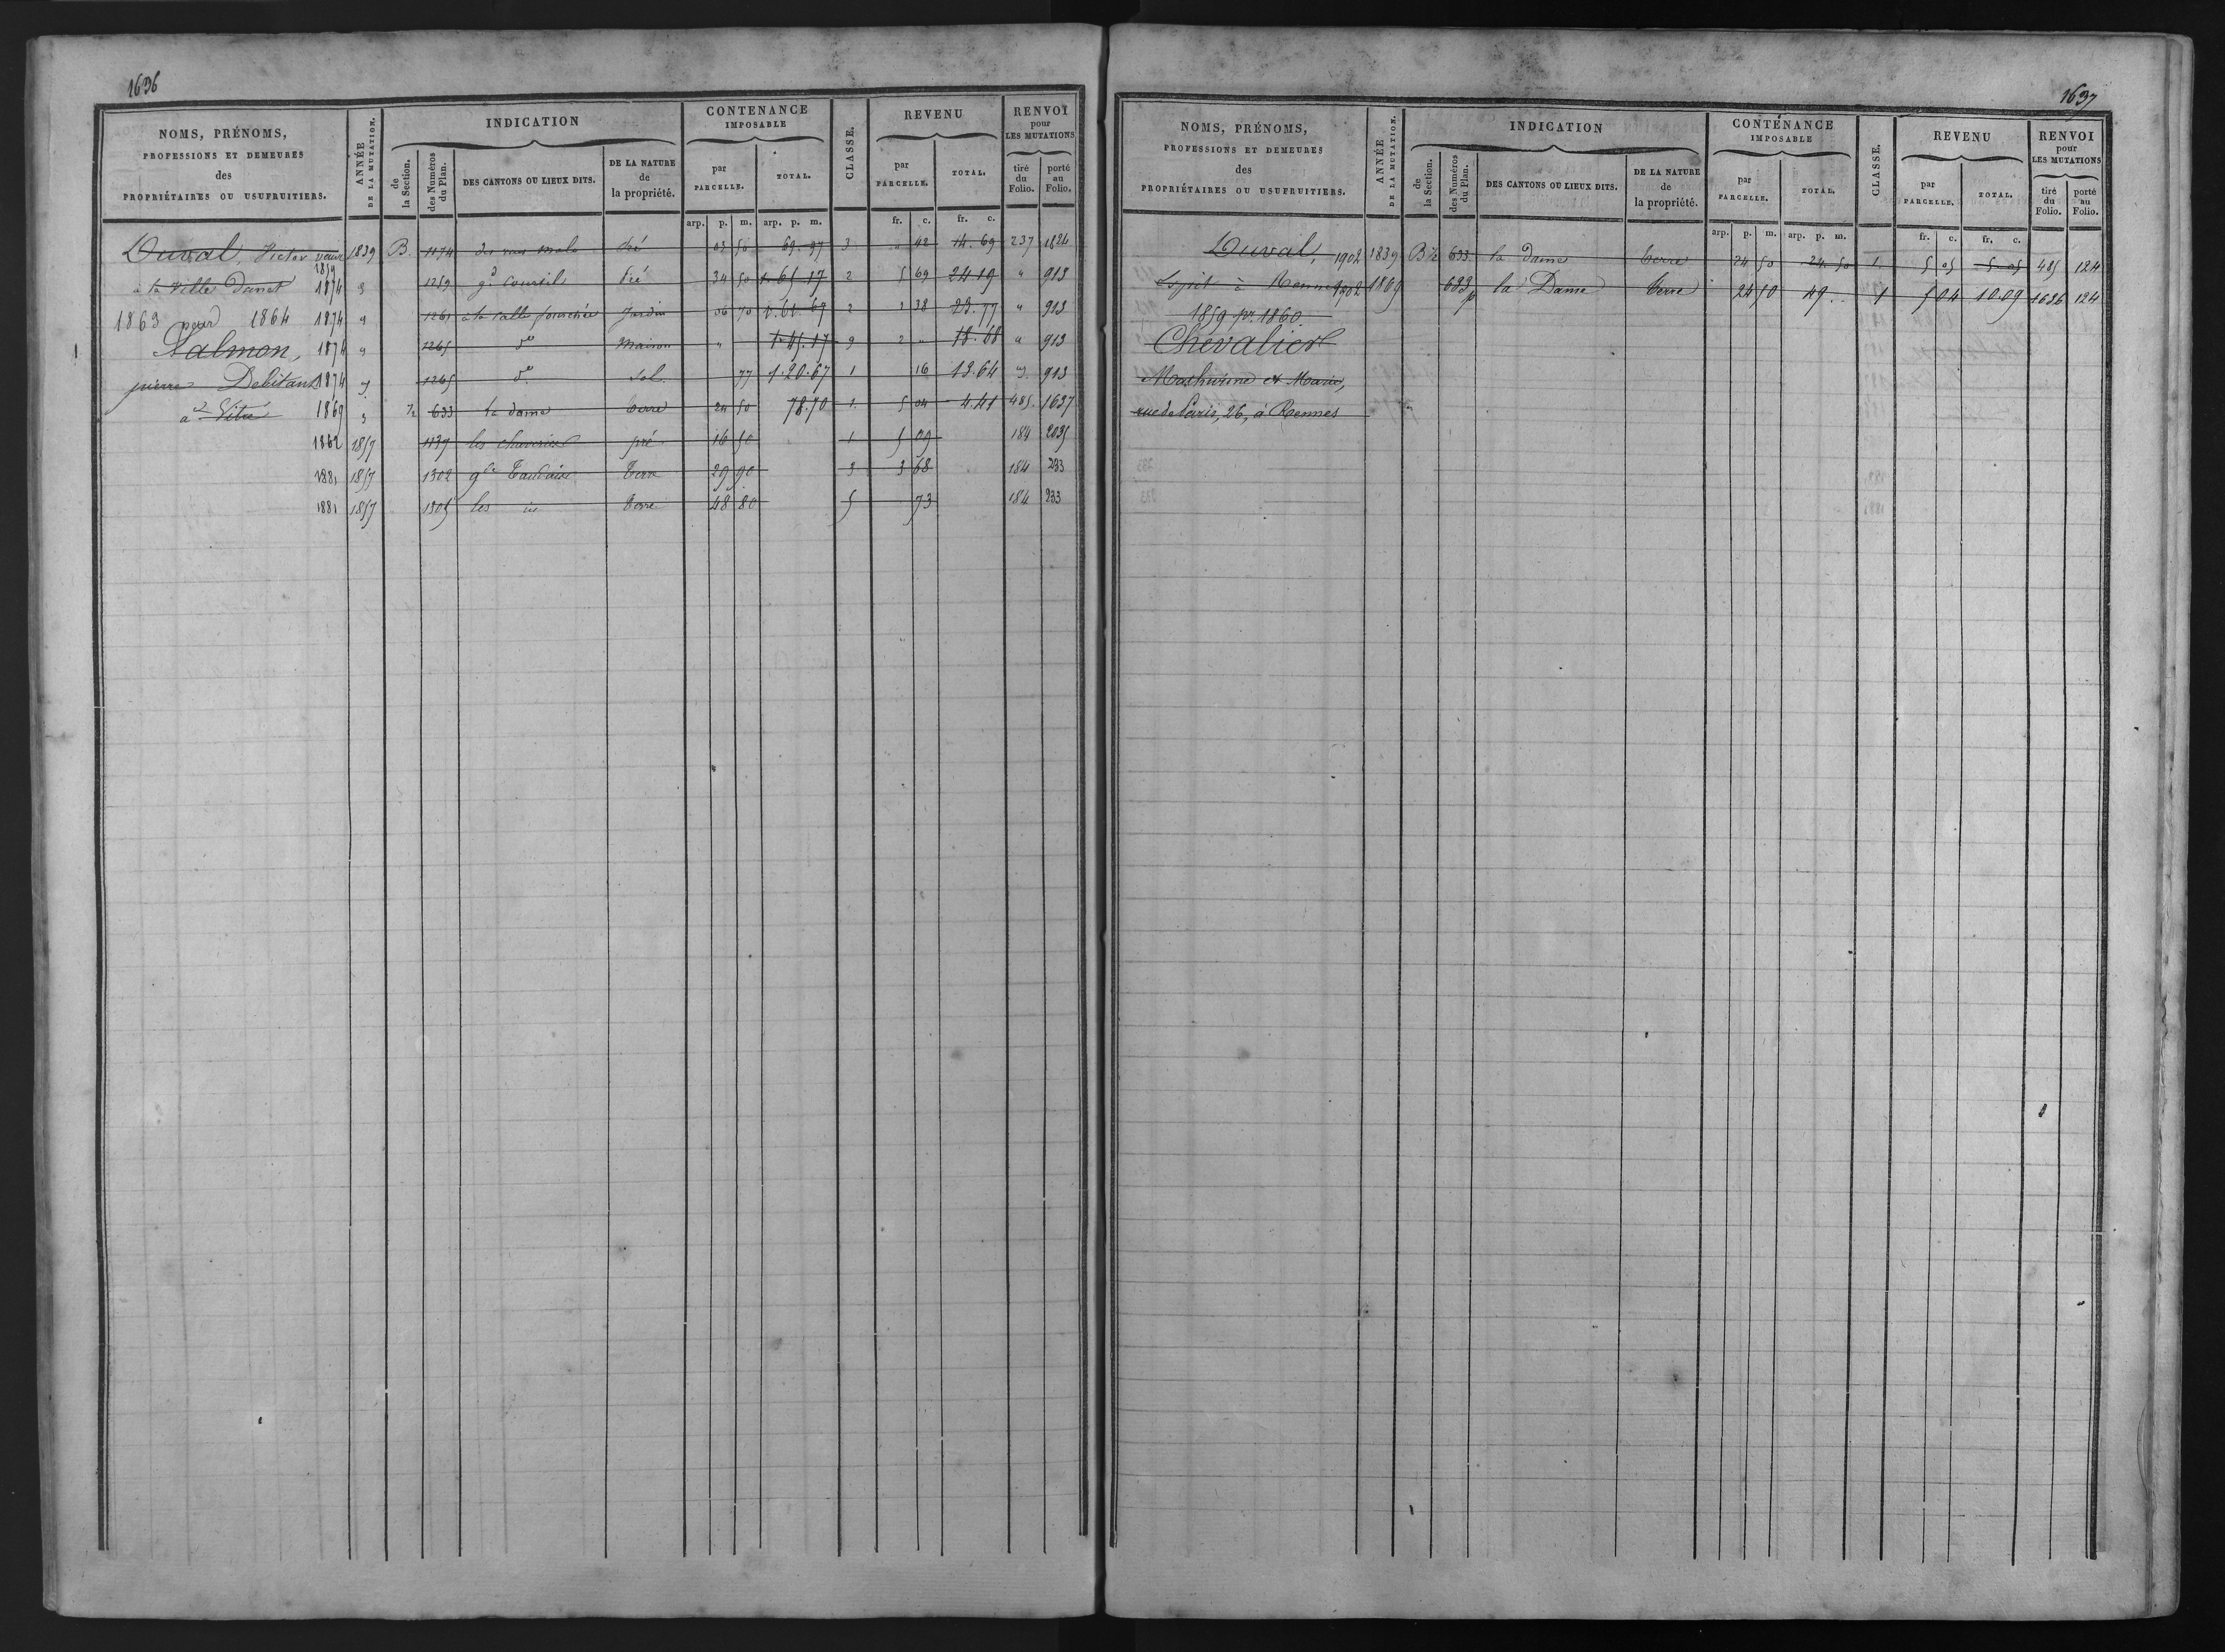 1636
NOMS, PRÉNOMS, PROFESSIONS ET DEMEURES des PROPRIÉTAIRES OU USUFRUITIERS.
ANNÉE DE LA MUTATION.
INDICATION
de la Section.
des Numéros du Plan.
DES CANTONS OU LIEUX DITS.
DE LA NATURE de la propriété.
CONTENANCE IMPOSABLE
par PARCELLE.
TOTAL.
CLASSE.
REVENU
par PARCELLE.
TOTAL.
RENVOI pour LES MUTATIONS
tiré du Folio.
porté au Folio.
arp. p. m. arp. p. m. fr. c. fr. c.
Duval, Victor 1839 B. 1174 Pré 50 69.97 3 " 42 14.69 237 1824
1859
à la Ville Danet 1874 " 1259 gd Courtil Pré 34 50 1.65.17 2 5 69 24.19 " 913
1863 pour 1864 1874 " 1261 à la salle Jardin 06 70 1.61.67 2 1 38 23.77 " 913
Salmon, 1874 " 1265 do Maison " 1.45.17 9 2 " 18.68 " 913
pierre Debitant 1874 " 1265 do Sol 77 1.20.67 1 16 13.64 " 913
à Vitré 1869 " ½ 633 la dame terre 24 50 78.70 1. 5 04 4.41 485. 1637
1862 1857 1137 pré 16 50 1 5 09 184 2035
1881 1857 1302 terre 29 90 3 3 68 184 233
1881 1857 1305 les terre 48 80 5 73 184 233
1637
NOMS, PRÉNOMS, PROFESSIONS ET DEMEURES des PROPRIÉTAIRES OU USUFRUITIERS.
ANNÉE DE LA MUTATION.
INDICATION
de la Section.
des Numéros du Plan.
DES CANTONS OU LIEUX DITS.
DE LA NATURE de la propriété.
CONTENANCE IMPOSABLE
par PARCELLE.
TOTAL.
CLASSE.
REVENU
par PARCELLE.
TOTAL.
RENVOI pour LES MUTATIONS
tiré du Folio.
porté au Folio.
arp. p. m. arp. p. m. fr. c. fr. c.
Duval, 1902 1839 B ½ 633 la dame terre 24 50 24.50 1. 5 05 5.05 485 124
Esprit à Rennes 1902 1869 633 p la Dame terre 24 50 49.. 1 5 04 10.09 1636 124
1859 pr. 1860
Chevalier
Mathurine et Marie,
rue de Paris, 26, à Rennes